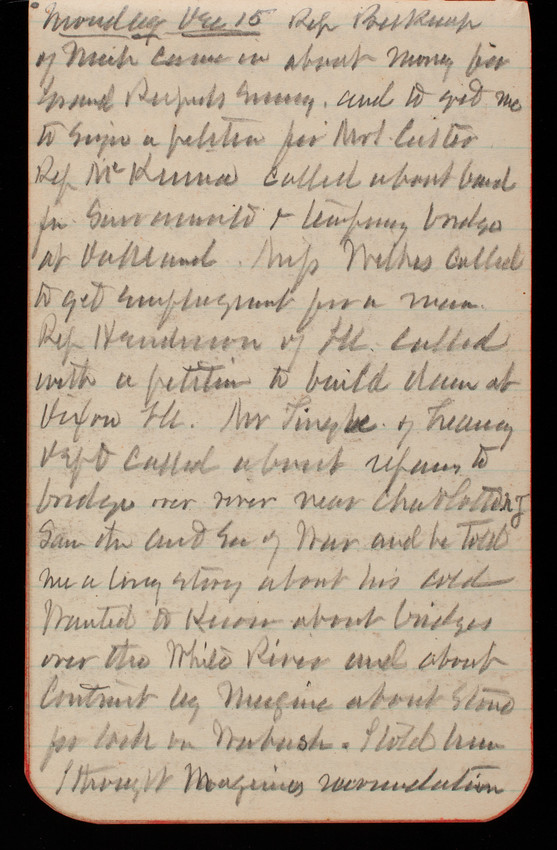 Monday Dec 15 Rep Belknap
of Mich came in about money for
Grand Rapids Survey. and to get me
to sign a petition for Mrs Custer
Rep McKenna called about land
for Sacramento & temporary bridge
at Oakland. Miss Wilkes called
to get employment for a man.
Rep Henderson of Ill. called
with a petition to build dam at
Dixon Ill. Mr Tingle of Treasury
Dept called about repairs to
bridge over river near
Saw the Act Sec of War and he told
me a long story about his cold
Wanted to know about bridges
over the White River and about
Contract by about Stone
for lock on Wabash. I told him
I thought recommendation